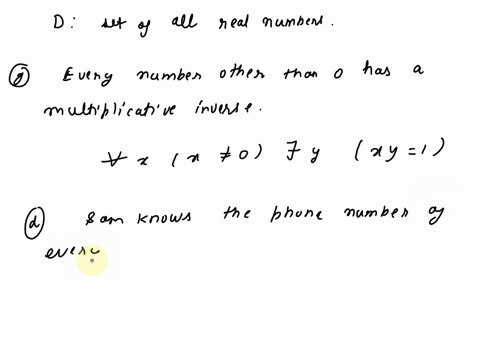 D: set of all real numbers.
(g) Every number other than 0 has a
multiplicative inverse.
∀ x (x ≠ 0) ∃ y (xy = 1)
(d) Sam knows the phone number of
every